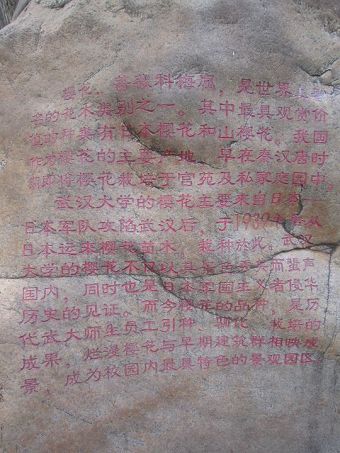 樱花，蔷薇科梅属，是世界上
的花木类别之一。其中最具观赏价
值的种类有日本樱花和山樱花。我国
作为樱花的主要产地，早在秦汉唐时
期即将樱花栽培于官苑及私家庭园中。
武汉大学的樱花主要来自日本，
日本军队攻陷武汉后，于1939年春从
日本运来樱花苗木，栽种於此。武汉
大学的樱花不仅以其
国内，同时也是日本军国主义者侵华
历史的见证。而今樱花的品种，是历
代武大师生员工引种、驯化、栽培的
成果，烂漫樱花与早期建筑群相映成
景，成为校园内最具特色的景观园区